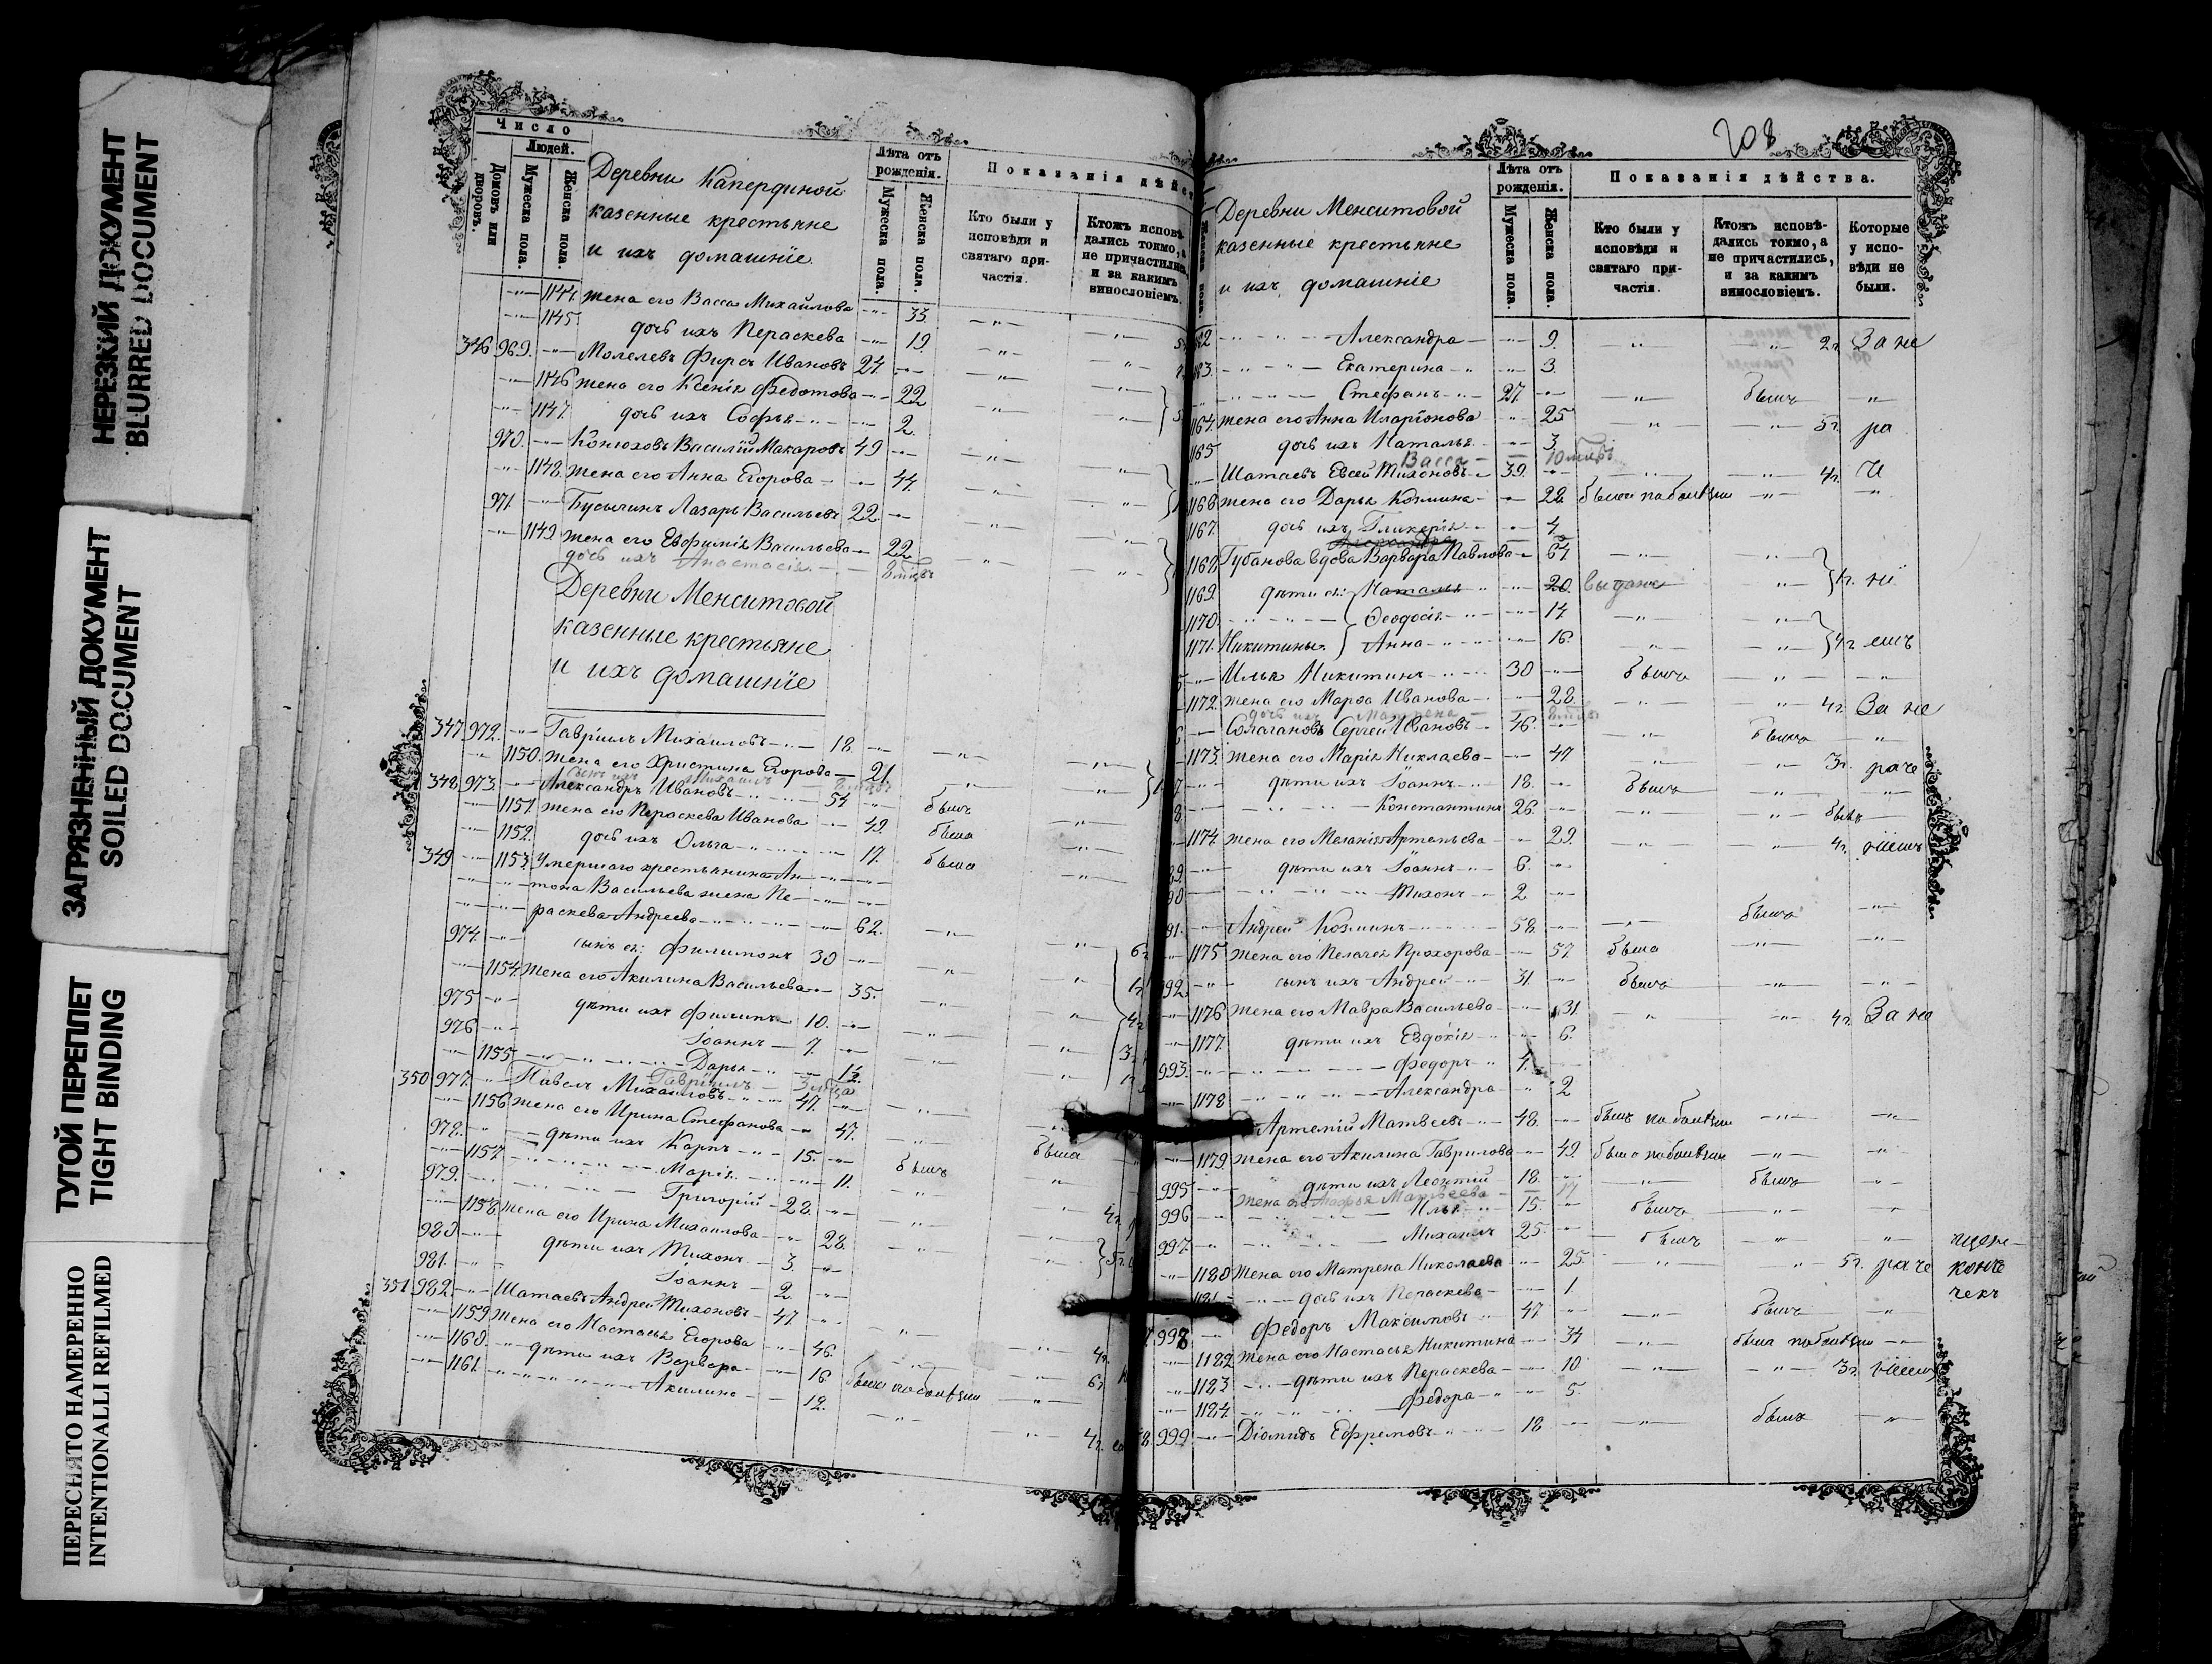 НЕРЕЗКИЙ ДОКУМЕНТ
BLURRED DOCUMENT
ЗАГРЯЗНЕННЫЙ ДОКУМЕНТ
SOILED DOCUMENT
ТУГОЙ ПЕРЕПЛЕТ
TIGHT BINDING
ПЕРЕСНЯТО НАМЕРЕННО
INTENTIONALLI REFILMED
Число
Людей.
Домовъ или дворовъ.
Мужеска пола.
Женска пола.
Деревни Капердиной
казенные крестьяне
и ихъ домашніе
Лѣта отъ рожденія.
Мужеска пола.
Женска пола.
Показанія дѣйст
Кто были у исповѣди и святаго причастія.
Ктожъ исповѣдались токмо, а не причастились, и за какимъ винословіемъ.
1144. жена его Васса Михайлова 33.
1145 дочь ихъ Пераскева 19.
346 969. Молелевъ Фирсъ Ивановъ 24.
1146 жена его Ксенія Федотова 22
1147. дочь ихъ Софья 2.
970. Конюховъ Василій Макаровъ 49
1148. жена его Анна Егорова 44.
971. Бусыгинъ Лазарь Васильевъ 22
1149 жена его Евфимія Васильева 22
дочь ихъ Анастасія
Деревни Менситовой
казенные крестьяне
и ихъ домашніе
347 972. Гавріилъ Михаиловъ 18.
1150. жена его Христина Егорова 21.
сынъ ихъ Михаилъ
348. 973. Александръ Ивановъ 54 былъ
1151 жена его Пераскева Иванова 49. была
1152. дочь ихъ Ольга 17. была
349 1153. Умершаго крестьянина Ан
тона Васильева жена Пе
раскева Андреева 62.
974. сынъ ея: Филимонъ 30
1154. жена его Акилина Васильева 35.
975 дѣти ихъ Филипъ 10.
976 Іоаннъ 7.
1155 Дарья 12.
Гавріилъ
350 977. Павелъ Михаиловъ 47.
1156 жена его Ирина Стефанова 47. была
978. дѣти ихъ Карпъ 15. былъ
1157. Марія 11.
979. Григорій 28.
1158. жена его Ирина Михаилова 28.
980 дѣти ихъ Тихонъ 3.
981. Іоаннъ 2.
351. 982. Шатаевъ Андрей Тихоновъ 47
1159 жена его Настасья Егорова 46.
1160. дѣти ихъ Варвара 16 была по болѣзни
1161. Акилина 12.
208
Деревни Менситовой
казенные крестьяне
и ихъ домашніе
Лѣта отъ рожденія.
Мужеска пола.
Женска пола.
Показанія дѣйства.
Кто были у исповѣди и святаго причастія.
Ктожъ исповѣдались токмо, а не причастились, и за какимъ винословіемъ.
Которые у исповѣди не были.
Александра 9. 2г. За не
Екатерина 3.
Стефанъ 27 былъ
1164. жена его Анна Иларіонова 25 5г. ра
1165 дочь ихъ Наталья 3
Васса 10 мцъ
Шатаевъ Евсей Тихоновъ 39. 4г. чи
1166 жена его Дарья Козмина 28 была по болѣзни
1167. дочь ихъ Гликерія 4
1168. Губанова вдова Варвара Павлова 64
1169. дѣти ея: Наталья 20. выдана 1г. ні
1170. Ѳеодосія 14
1171. Никитины Анна 16. 4г. емъ
Илья Никитинъ 30 былъ
1172. жена его Марѳа Иванова 28. 4г. За не
дочь ихъ
Солагановъ Сергей Ивановъ 46. былъ
1173. жена его Марія Николаева 47 3г. раче
дѣти ихъ Іоаннъ 18. былъ
Константинъ 26. былъ
1174. жена его Меланія Артемьева 29. 4г. ніемъ
дѣти ихъ Іоаннъ 6.
Тихонъ 2
Андрей Козминъ 58. былъ
1175 жена его Пелагея Прохорова 57 была
992. сынъ ихъ Андрей 31. былъ
1176 жена его Мавра Васильева 31. 4г. За не
1177. дѣти ихъ Евдокія 6.
993. Федоръ 4.
1178 Александра 2
Артемій Матвеевъ 48. былъ по болѣзни
1179 жена его Акилина Гаврилова 49. была по болѣзни
995 дѣти ихъ Леонтій 18. былъ
жена его Марья Матвеева 17
996 Илья 15. былъ
997. Михаилъ 25. былъ
1180 жена его Матрена Николаева 25. 5г. раче
дочь ихъ Пераскева 1.
998 Федоръ Максимовъ 47 былъ
1182 жена его Настасья Никитина 34 была по болѣзни
1183 дѣти ихъ Пераскева 10 3г. ніемъ
1184. Федора 5.
999. Діомидъ Ефремовъ 18 былъ